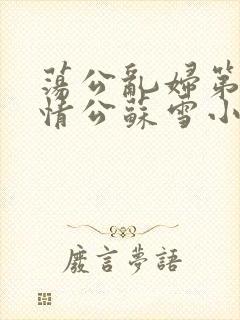 蕩公亂婦第
情公蘇雪小
廢言夢語